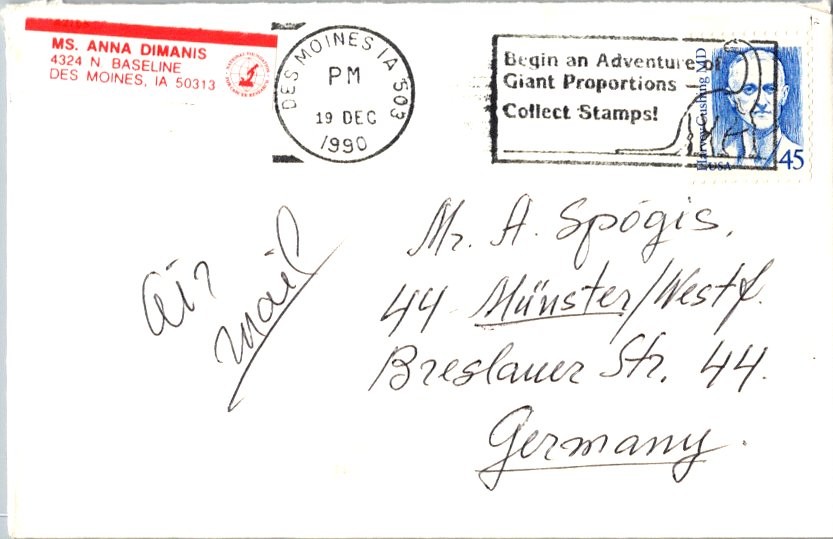 MS. ANNA DIMANIS
4324 N BASELINE
DES MOINES, IA 50313
DES MOINES IA 503
PM
19 DEC
1990
Begin an Adventure of
Giant Proportions
Collect Stamps!
Harvey Cushing MD
USA
45
Air
mail
Mr. A. Spógis,
44 Münster/Westf.
Breslauer Str. 44.
Germany.